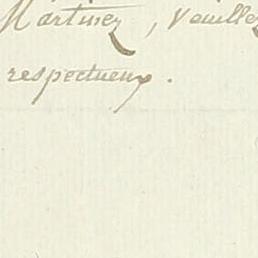 Martinez, veuillez
respectueux.